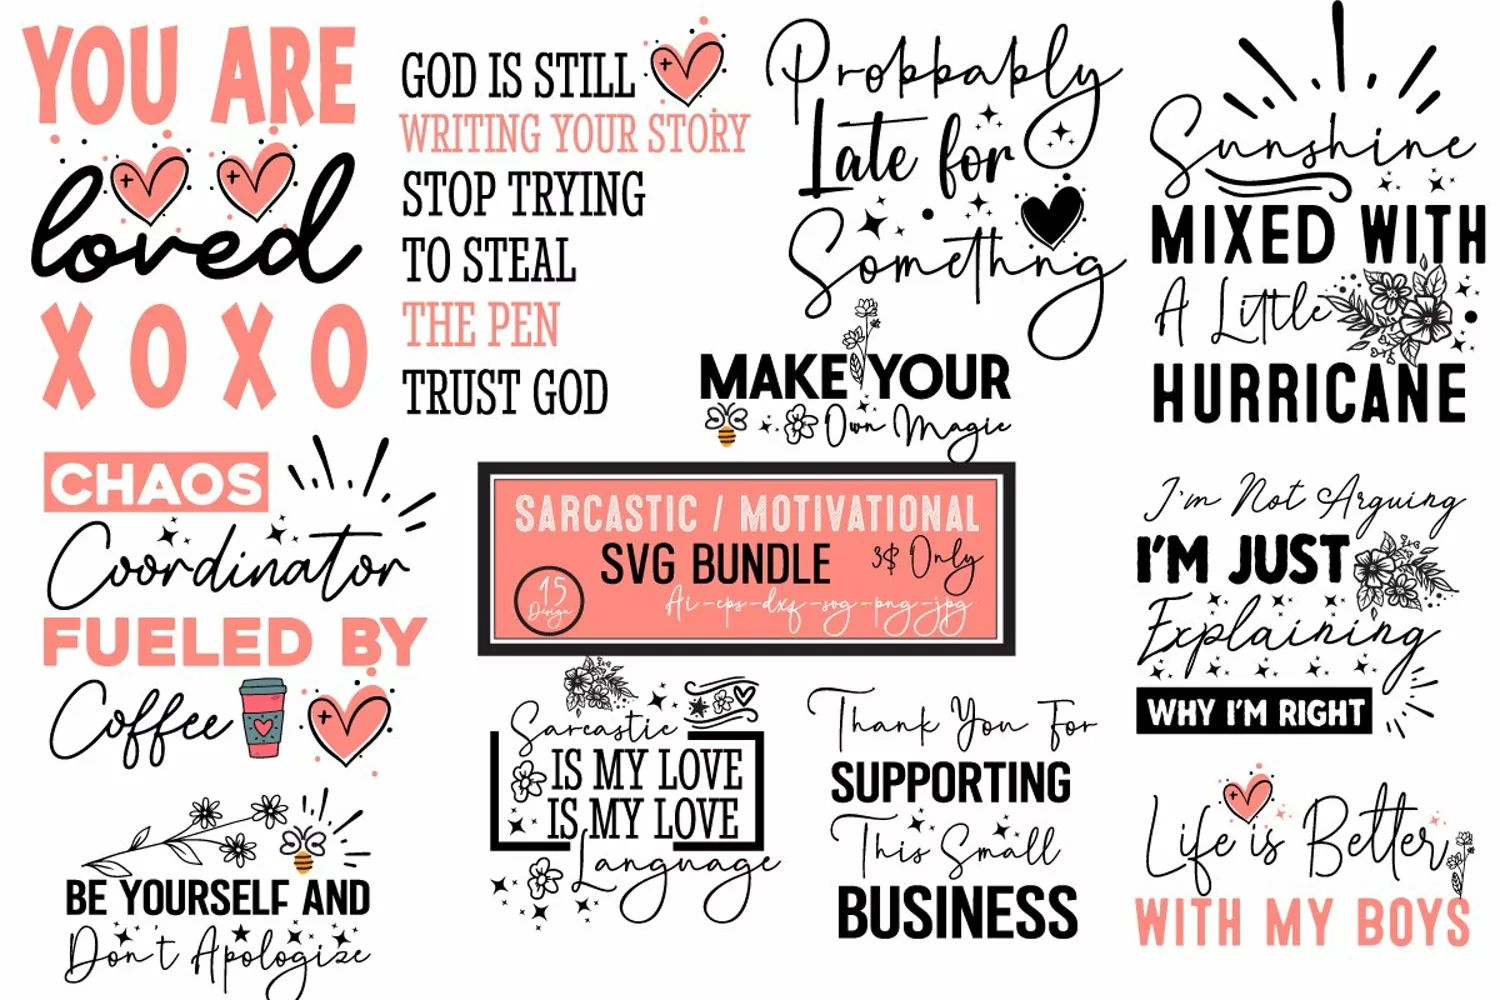 YOU ARE
loved
XOXO
GOD IS STILL
WRITING YOUR STORY
STOP TRYING
TO STEAL
THE PEN
TRUST GOD
Probbably
Late for
Somethng
MAKE YOUR
Own Magic
Sunshine
MIXED WITH
A Little
HURRICANE
CHAOS
Coordinator
FUELED BY
Coffee
SARCASTIC / MOTIVATIONAL
SVG BUNDLE
3$ Only
15
Design
Ai-eps-dxf-svg-png-jpg
I'm Not Arguing
I'M JUST
Explaining
WHY I'M RIGHT
BE YOURSELF AND
Don't Apologize
Sarcastic
IS MY LOVE
IS MY LOVE
Language
Thank You For
SUPPORTING
This Small
BUSINESS
Life is Better
WITH MY BOYS